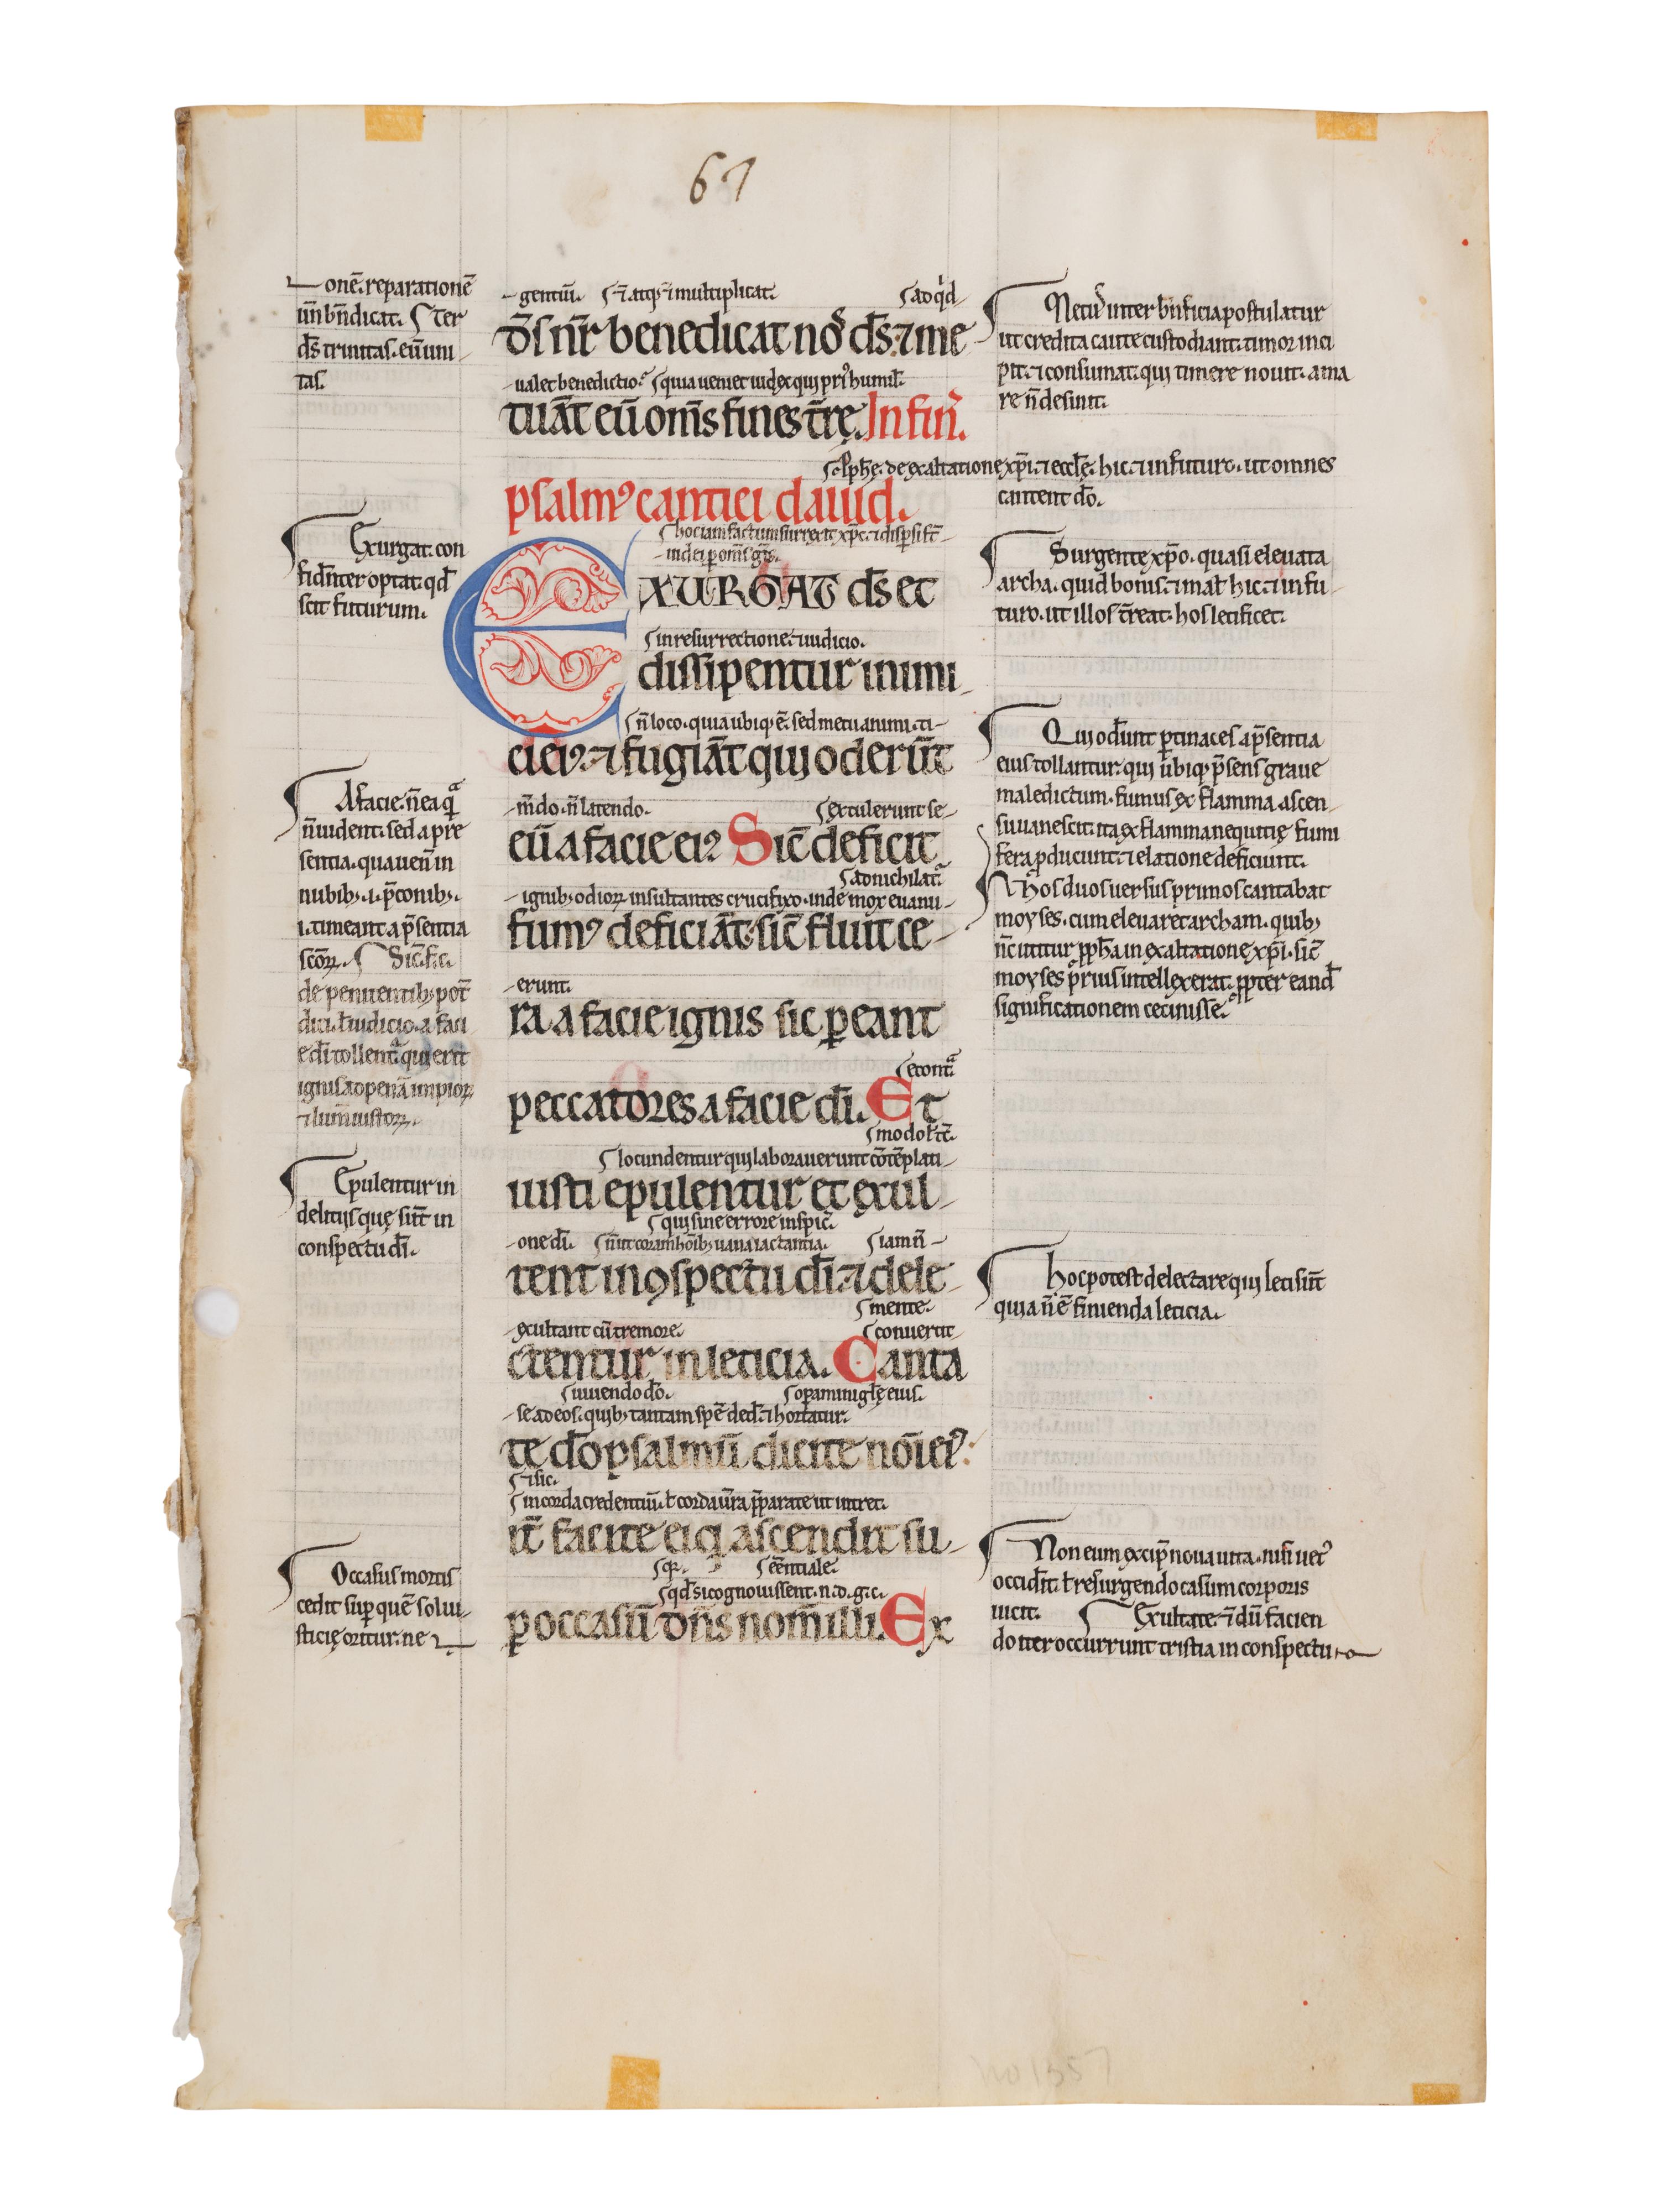 67
onē. reparationē
uñ bñdicat. Ter
d̄s trinitas. eū uni
tas.
Exurgat. con
fidn̄ter optat. qd̄
scit futurum.
A facie. n̄ ea qᵃ
n̄ uident. sed a pre
sentia. qua uen̄ in
nubibꝫ. i. p̄conibꝫ.
i. timeant a p̄sentia
sc̄oꝝ. Sic. fic.
de penitentibꝫ pot̄
dici. ł iudicio. a faci
e dī tollentᷣ qui erit
ignis ad penā impioꝝ
⁊ lum̄ iustoꝝ.
Epulentur in
delitiis quę sūt in
conspectu dī.
Occasus mortis
cedit sup quē sol iu
sticię oritur. ne
gentiū. ⁊ multiplicat. ad qͥd
d̄s nr̄ benedicat nos d̄s. ⁊ me
ualet benedictio. quia ueniet iudex qui priꝰ humil.
tuāt eū om̄s fines tr̄ę. In fin̄.
psalmꝰ cantici dauid.
hoc iam factum surrexit xp̄c. ⁊ dispsi st̄
iudei p om̄s gn̄s.
EXURGAT d̄s et
in resurrectione ⁊ iudicio.
dissipentur inimi
n̄ loco. quia ubiqꝫ ē. sed metu animi. ti
ci eiꝰ. ⁊ fugiāt qui oderūt
m̄do. n̄ latendo. extulerunt se
eū a facie eiꝰ Sic̄ deficit
ad nichilatᷣ
ignibꝫ odioꝝ insultantes crucifixo. inde mox euanu
fumꝰ deficiāt. sic̄ fluit ce
erunt.
ra a facie ignis sic peant
econtᵃ
peccatores a facie dī. Et
Iocundentur qui laborauerunt cōtēplati
iusti epulentur et exul
qui sine errore inspic̄.
one dī. n̄ ut coram hōibꝫ uana iactantia. iam n̄
tent in ꝯspectu dī. ⁊ dele
mente.
exultant cū tremore. conuertit
ctentur in leticia. Canta
uiuendo do. opam ini glę eius.
se ad eos. quibꝫ tantam spē ded̄. ⁊ hortatur.
te do psalmū dicite nōi eiꝰ:
⁊ sic.
in corda credentiū. ł corda ur̄a p̄parate ut intret.
it̄ facite ei qͥ ascendit su
essētiale.
qd̄ si cognouissent. n. d. g. c.
p occasū dn̄s nom̄ illi. Ex
inter bn̄ficia postulatur
ut credita caute custodiant. timor inci
pit. ⁊ consumat. qui timere nouit. ama
re n̄ desinit.
de exaltatione xp̄i. ⁊ eccłę. hic. ⁊ in futuro. ut omnes
cantent do.
Surgente xp̄o. quasi eleuata
archa. quid bonis. ⁊ mał hic. ⁊ in fu
turo. ut illos t̄reat. hos letificet.
Qui odunt ptinaces a p̄sentia
eius tollantur. qui ubiqꝫ p̄sens graue
maledictum. fumus ex flamma. ascen
su uanescit. ita ex flamma nequitię fumi
fera pducunt. ⁊ elatione deficiunt.
Hos duos uersus primos cantabat
moyses. cum eleuaret archam. quibꝫ
nc̄ utitur pph̄a in exaltatione xp̄i. sic̄
moyses p̄rius intellexerat. ppter eand̄
significationem cecinisse.
hoc potest delectare qui leti sūt
quia n̄ ē finienda leticia.
Non eum excip̄ noua uita. nisi uetꝰ
occidit. ł resurgendo casum corporis
uicit. Exultate. ⁊ dū facien
do iter occurrunt tristia in conspectu
no 1357